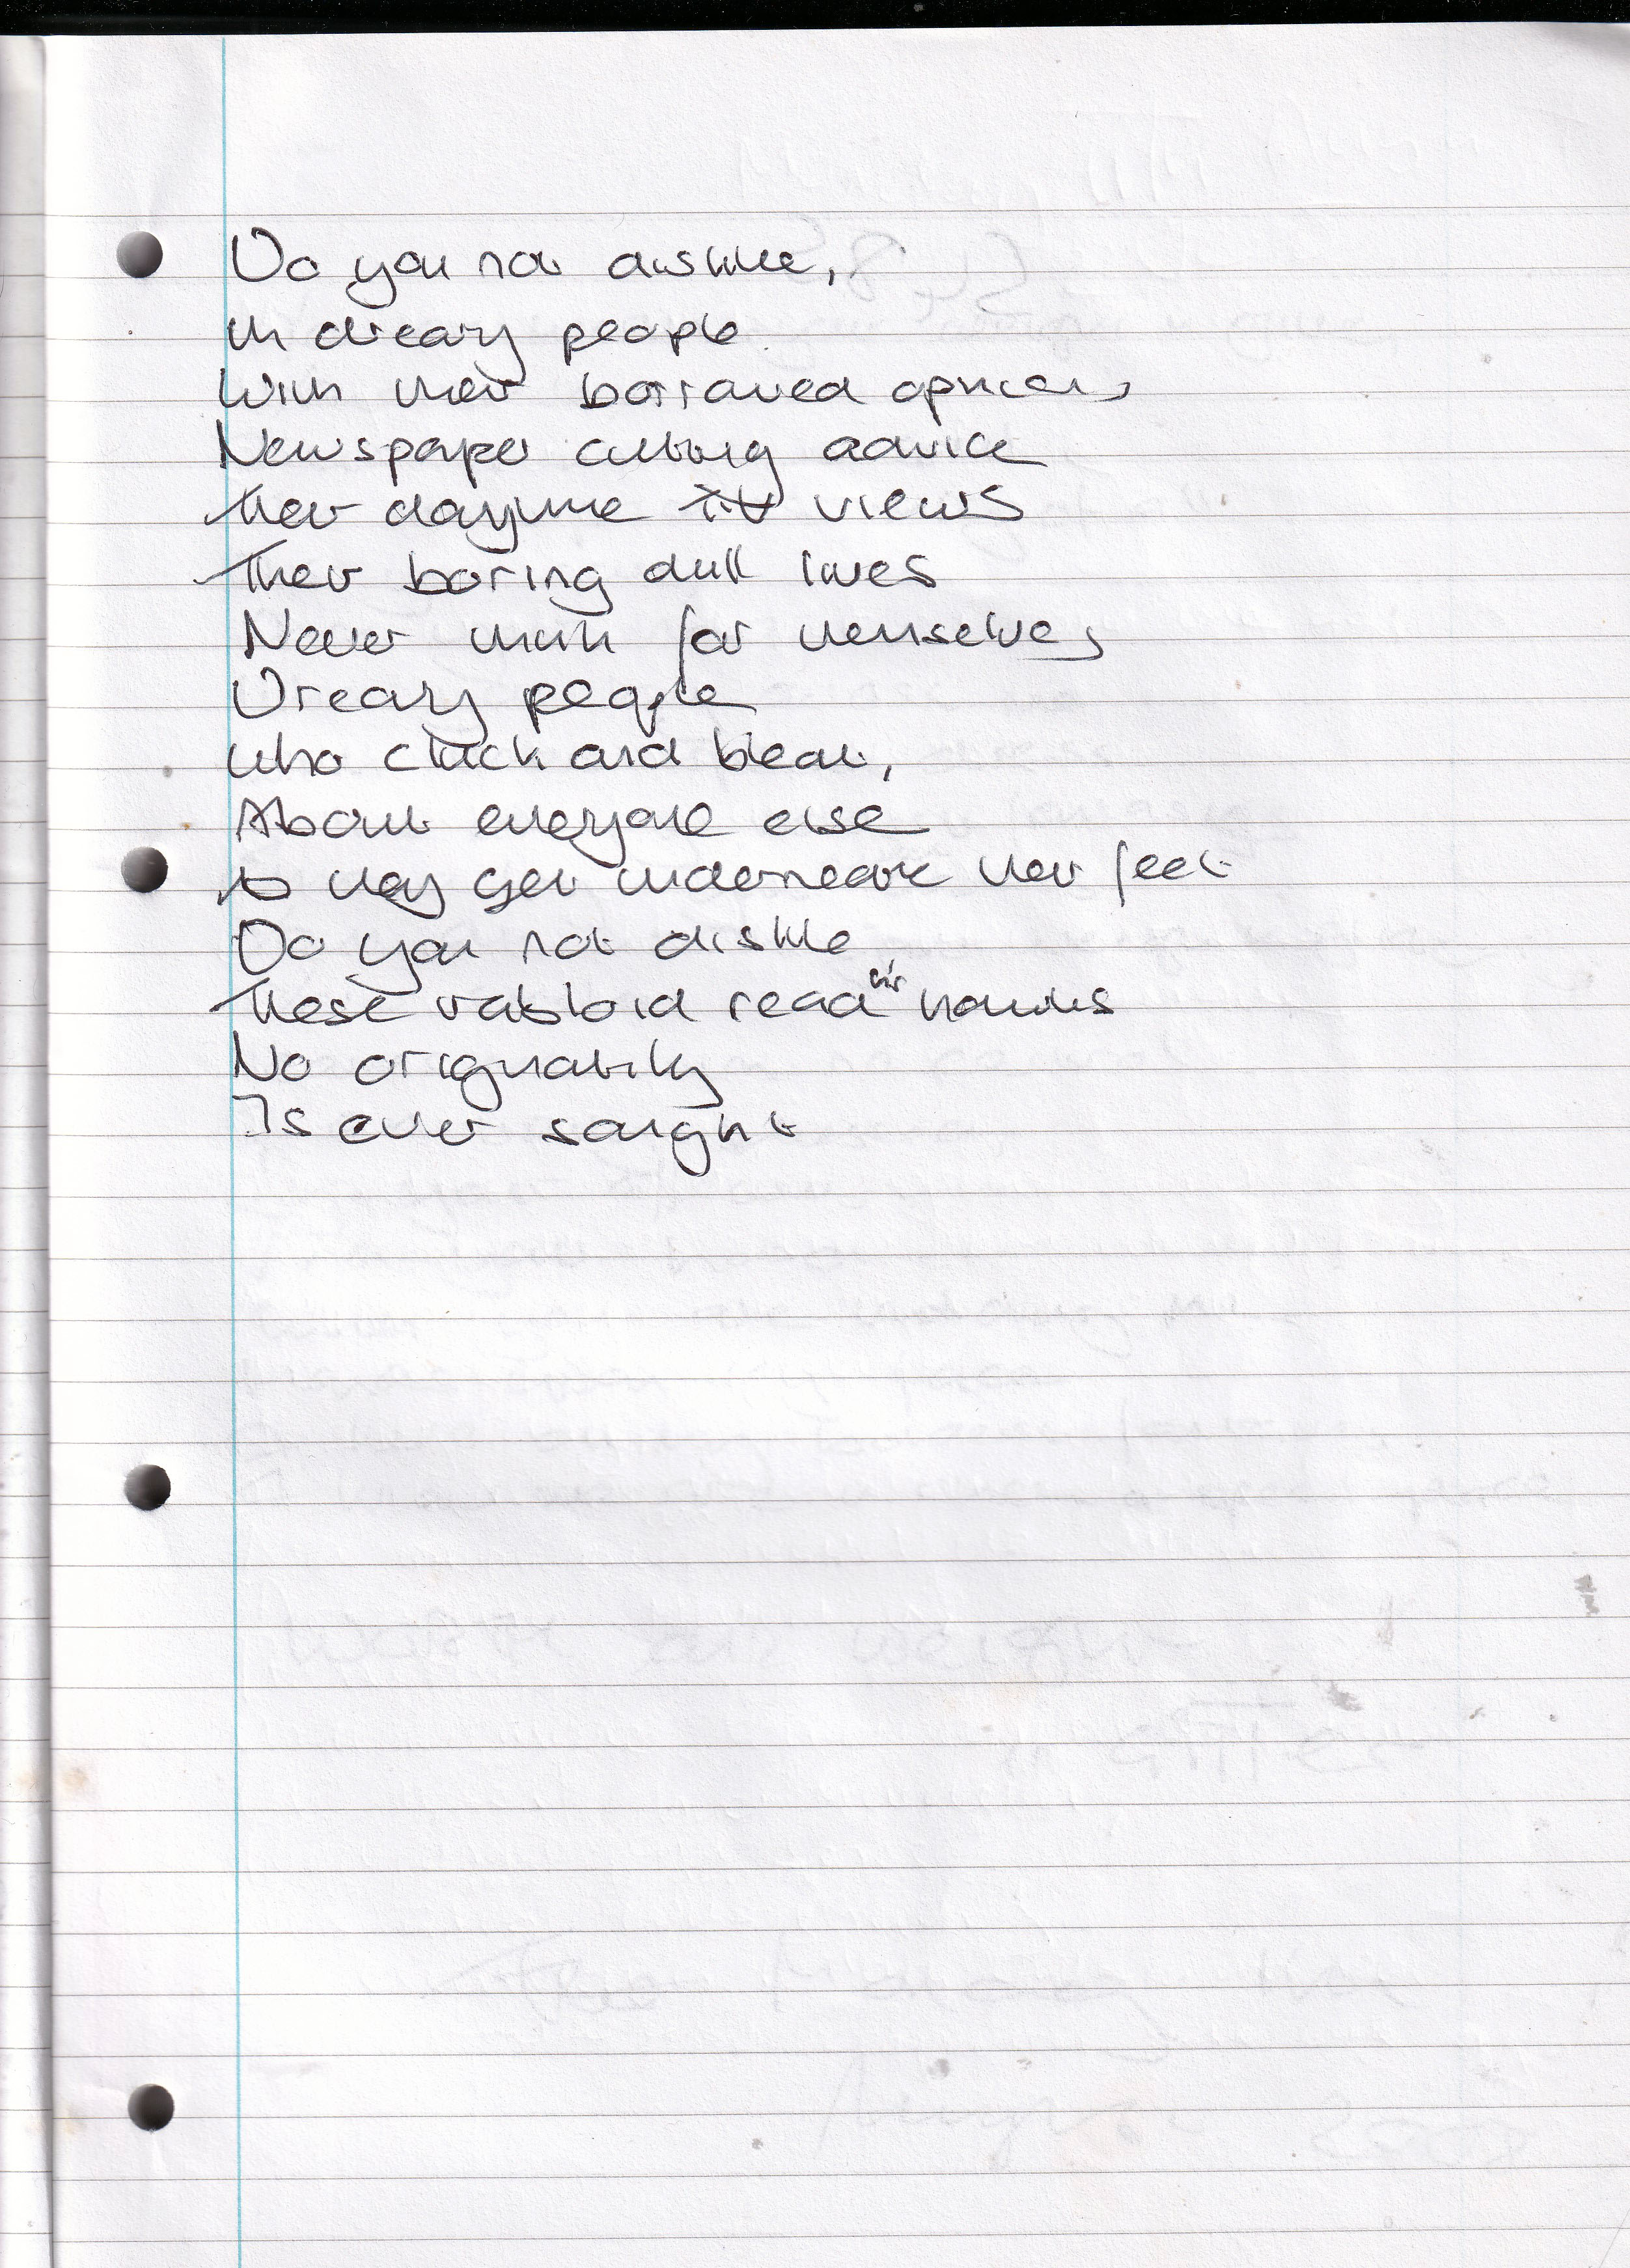 Do you not dislike,
th dreary people
With their borrowed opinions
Newspaper cutting advice
Their daytime T.V views
Their boring dull lives
Never think for themselves
Dreary people
who cluck and bleat,
About everyone else
As they get underneath their feet
Do you not dislike
These tabloid read in's
No originality
Is ever sought